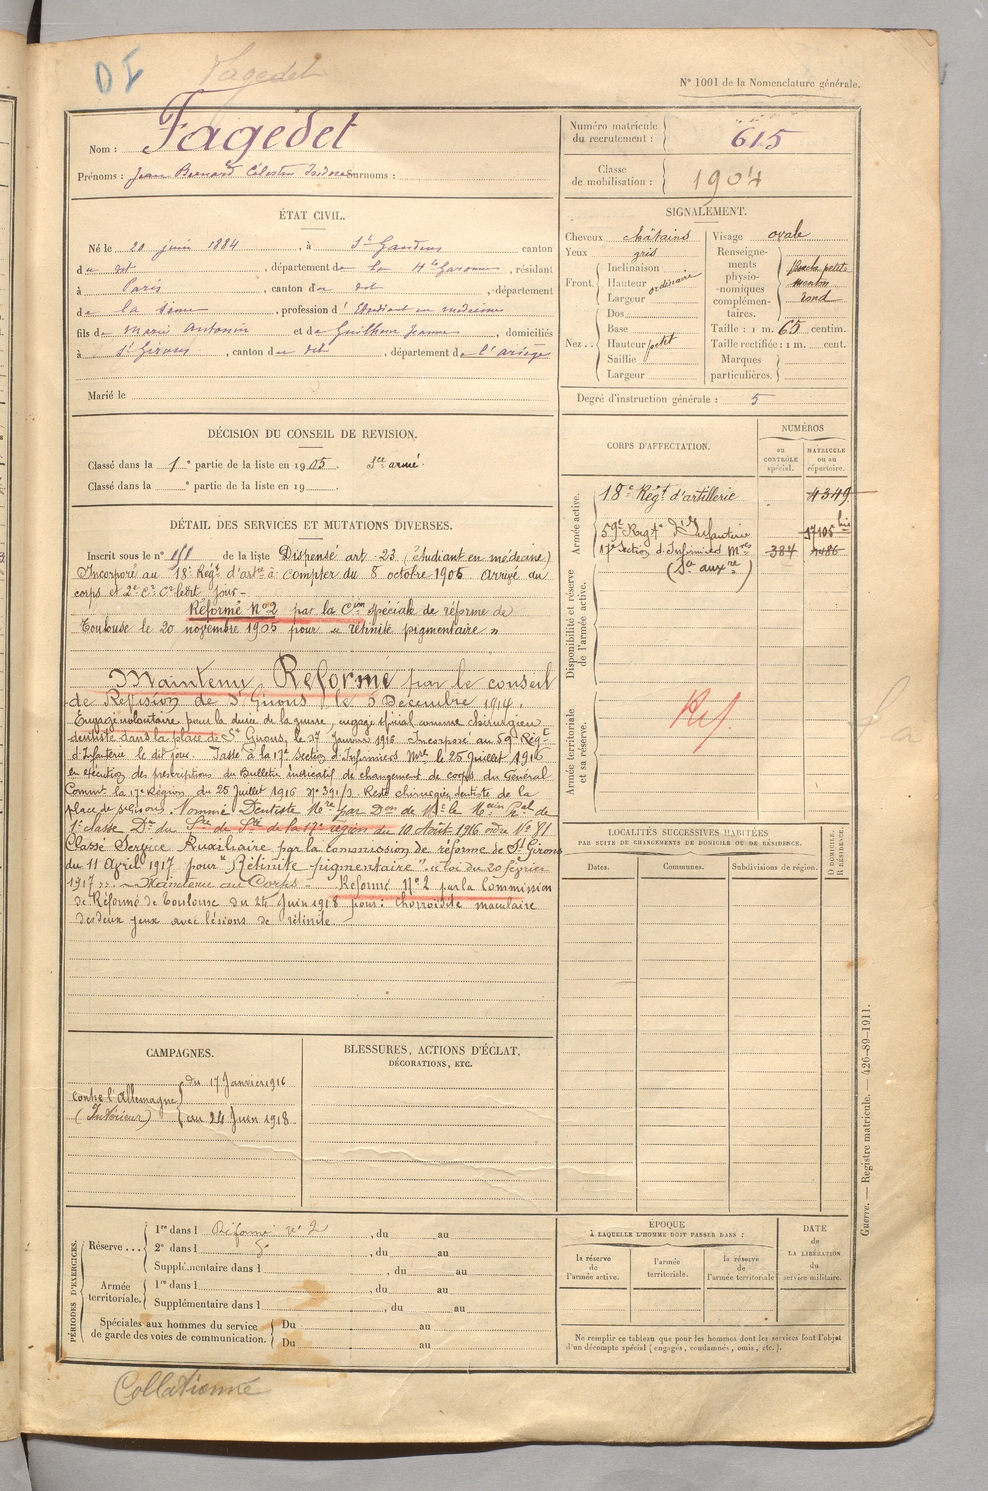 DI
Fagedet
N° 1001 de la Nomenclature générale.
Nom : Fagedet
Prénoms : Jean Bernard Célestin Isidore Surnoms :
Numéro matricule du recrutement : 615
Classe de mobilisation : 1904
ÉTAT CIVIL.
Né le 20 juin 1884, à St Gaudens canton
du dit, département de la Hte Garonne, résidant
à Paris, canton du dit, département
de la Seine, profession d'Etudiant en médecine
fils de Marie Antonin et de Guilhem Jeanne, domiciliés
à St Girons, canton du dit, département de l'ariège
Marié le
SIGNALEMENT.
Cheveux châtains
Yeux gris
Front. Inclinaison
Hauteur ordinaire
Largeur
Nez.. Dos
Base
Hauteur petit
Saillie
Largeur
Visage ovale
Renseignements physionomiques complémentaires. Bouche petite
menton
rond
Taille : 1 m. 65 centim.
Taille rectifiée : 1 m. cent.
Marques particulières.
Degré d'instruction générale : 5
DÉCISION DU CONSEIL DE REVISION.
Classé dans la 1e partie de la liste en 1905. Sce armé.
Classé dans la e partie de la liste en 19
DÉTAIL DES SERVICES ET MUTATIONS DIVERSES.
Inscrit sous le n° de la liste Dispensé art. 23. (étudiant en médecine)
Incorporé au 18e Regt d'artie à compter du 8 octobre 1905 arrivé au
corps et 2e Cr Ct ledit jour –
Réformé N°2 par la Con spéciale de réforme de
Toulouse le 20 novembre 1905 pour « rétinite pigmentaire »
Maintenu Réformé par le conseil
de Revision de St Girons, le 5 Décembre 1914.
Engagé volontaire pour la durée de la guerre, engagé spécial comme chirurgien
dentiste dans la place de St Girons, le 17 Janvier 1916 Incorporé au 59e Régt
d'Infanterie le dit jour. Passé à la 17e Section d'Infirmiers Mres le 25 Juillet 1916
en exécution des prescriptions du Bulletin indicatif de changement de corps du Général
Commt la 17e Région du 25 Juillet 1916 N° 391/3. Reste chirurgien dentiste de la
place de St Girons. Nommé Dentiste Mre par Don de Mr le Mcin Pal de
1e classe Dr du Sce de Sté de la 17e région du 10 Août 1916 ordre N° 81
Classé Service Auxiliaire par la Commission de réforme de St Girons
du 11 Avril 1917 pour "Rétinite pigmentaire". « loi du 20 février
1917 ». – Maintenu au Corps – Réformé N°2 par la Commission
de Réforme de Toulouse du 24 Juin 1918 pour : choroïdite maculaire
des deux yeux avec lésions de rétinite.
CORPS D'AFFECTATION.
NUMÉROS
au CONTRÔLE spécial.
MATRICULE ou au répertoire.
Armée active.
18e Régt d'artillerie 4349
59e Regt d'Infanterie 17105 bis
17e Section d'Infirmiers Mres 384 7486
(Sce auxre)
Disponibilité et réserve de l'armée active.
Armée territoriale et sa réserve.
Réf.
LOCALITÉS SUCCESSIVES HABITÉES
PAR SUITE DE CHANGEMENTS DE DOMICILE OU DE RÉSIDENCE.
Dates.
Communes.
Subdivisions de région.
D DOMICILE.
R RÉSIDENCE.
CAMPAGNES.
contre l'Allemagne du 17 Janvier 1916
(Intérieur) au 24 Juin 1918
BLESSURES, ACTIONS D'ÉCLAT,
DÉCORATIONS, ETC.
PÉRIODES D'EXERCICES.
Réserve ... 1re dans l Réformé n° 2, du au
2e dans l, du au
Supplémentaire dans l, du au
Armée territoriale. 1re dans l, du au
Supplémentaire dans l, du au
Spéciales aux hommes du service de garde des voies de communication. Du au
Du au
ÉPOQUE
À LAQUELLE L'HOMME DOIT PASSER DANS :
la réserve de l'armée active.
l'armée territoriale.
la réserve de l'armée territoriale
DATE DE LA LIBÉRATION du service militaire.
Ne remplir ce tableau que pour les hommes dont les services font l'objet
d'un décompte spécial (engagés, condamnés, omis, etc.).
Guerre. — Registre matricule. — 426-89-1911.
Collationné